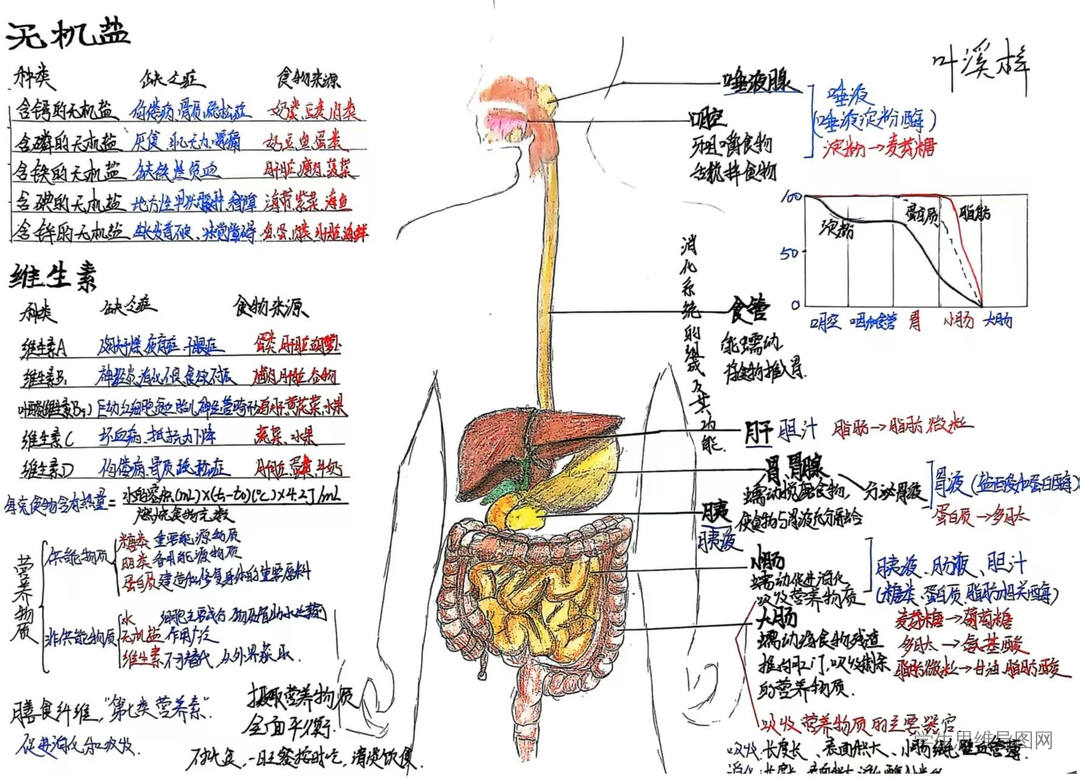 无机盐
种类 缺乏症 食物来源
含钙的无机盐 佝偻病、骨质疏松症 奶类、豆类、肉类
含磷的无机盐 厌食、肌无力、骨痛 奶、豆、鱼、蛋类
含铁的无机盐 缺铁性贫血 肝脏、瘦肉、菠菜
含碘的无机盐 地方性甲状腺肿 海带、紫菜、海鱼
含锌的无机盐 生长发育不良、味觉障碍 肝脏、海鲜
维生素
种类 缺乏症 食物来源
维生素A 皮肤干燥、夜盲症、干眼症 肝脏、胡萝卜
维生素B₁ 神经炎、消化不良、食欲不振 瘦肉、肝脏、谷物
维生素C 坏血病、抵抗力下降 蔬菜、水果
维生素D 佝偻病、骨质疏松症 肝脏、蛋、牛奶
每克食物含有热量=水的体积(mL)×(t₂-t₀)(℃)×4.2J/mL
燃烧食物克数
营养物质
供能物质
糖类 重要能源物质
脂类 备用能源物质
蛋白质 建造和修复身体的重要原料
非供能物质
水 细胞主要成分
无机盐 作用广泛
维生素 不可替代,从外界获取
膳食纤维,"第七类营养素"
促进消化和吸收.
摄取营养物质
全面平衡
不挑食、一日三餐按时吃、清淡饮食.
叶溪梓
唾液腺
唾液
(唾液淀粉酶)
淀粉→麦芽糖
口腔
牙咀嚼食物
舌搅拌食物
消化系统的组成及其功能.
100
50
0
淀粉 蛋白质 脂肪
口腔 咽和食管 胃 小肠 大肠
食管
能蠕动
将食物推入胃.
肝 胆汁 脂肪→脂肪微粒
胃 胃腺 分泌胃液
胃液(盐酸和蛋白酶)
蛋白质→多肽
蠕动搅磨食物,
使食物与胃液充分混合
胰
胰液
小肠
蠕动促进消化
吸收营养物质
胰液、肠液、胆汁
(糖类、蛋白质、脂肪相关酶)
麦芽糖→葡萄糖
多肽→氨基酸
脂肪微粒→甘油、脂肪酸
大肠
蠕动将食物残渣
推向肛门、吸收剩余
的营养物质.
吸收营养物质的主要器官
吸收:长度长、表面积大、小肠绒毛
学生思维导图网